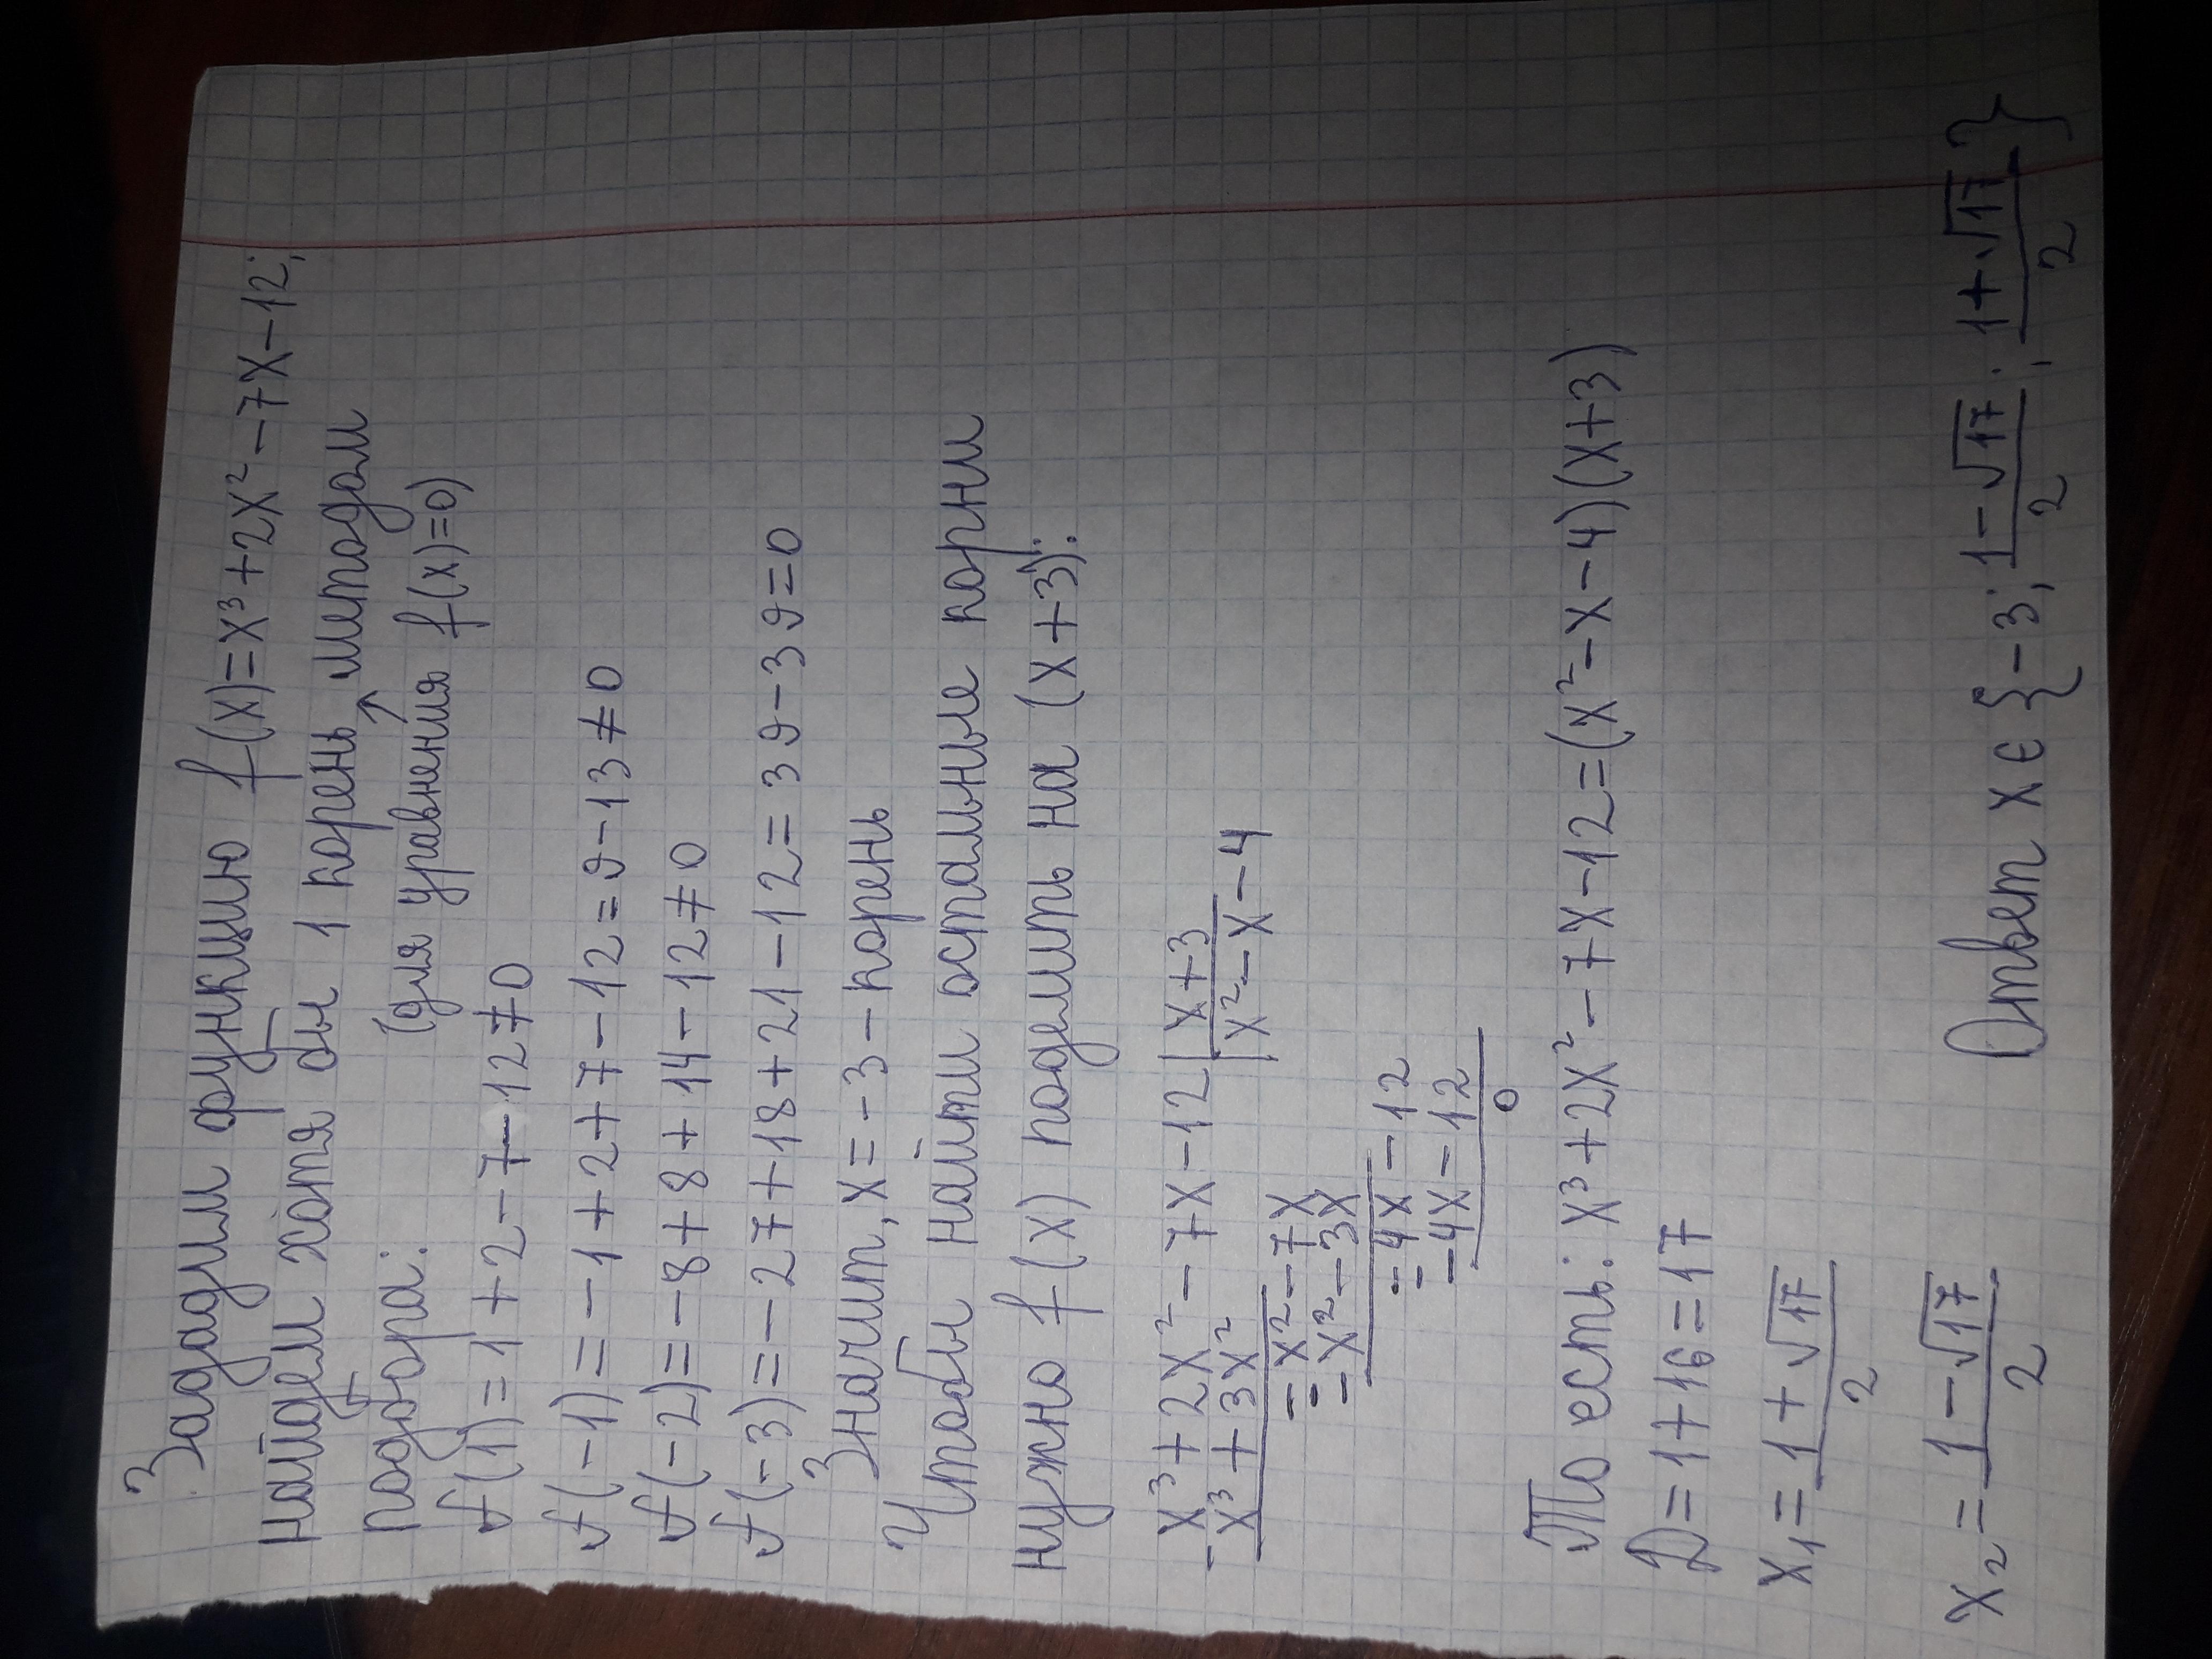 Зададим функцию f(x)=x³+2x²-7x-12;
найдем хотя бы 1 корень методом
(для уравнения f(x)=0)
подбора:
f(1)=1+2-7-12≠0
f(-1)=-1+2+7-12=9-13≠0
f(-2)=-8+8+14-12≠0
f(-3)=-27+18+21-12=39-39=0
Значит, x=-3-корень
Чтобы найти остальные корни
нужно f(x) поделить на (x+3):
x³+2x²-7x-12 | x+3
x³+3x² | x²-x-4
-x²-7x
-x²-3x
-4x-12
-4x-12
0
То есть: x³+2x²-7x-12=(x²-x-4)(x+3)
D=1+16=17
x₁=(1+√17)/2
x₂=(1-√17)/2
Ответ x∈{-3; (1-√17)/2; (1+√17)/2}